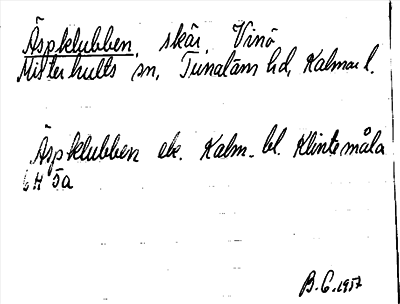 Äspklubben, skär, Vinö
Misterhults sn, Tunaläns hd, Kalmar l.
Äspklubben ek. Kalm. bl. Klintemåla
6 H 5a
B.G. 1957